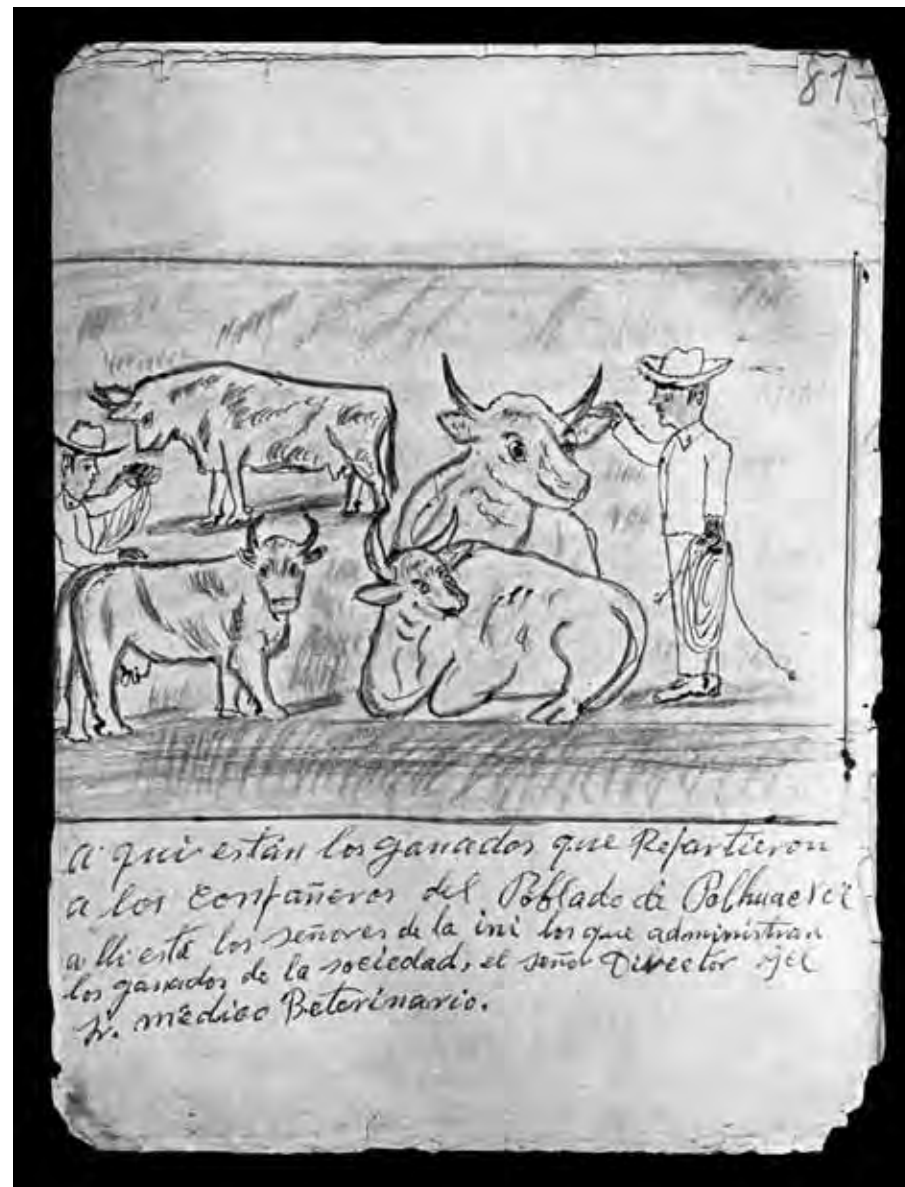 81-
a qui están los ganados que Repartieron
a los Compañeros del Poblado de
alli está los señores de la ini los que administran
los ganados de la sociedad, el señor Director y el
Sr. médico Beterinario.